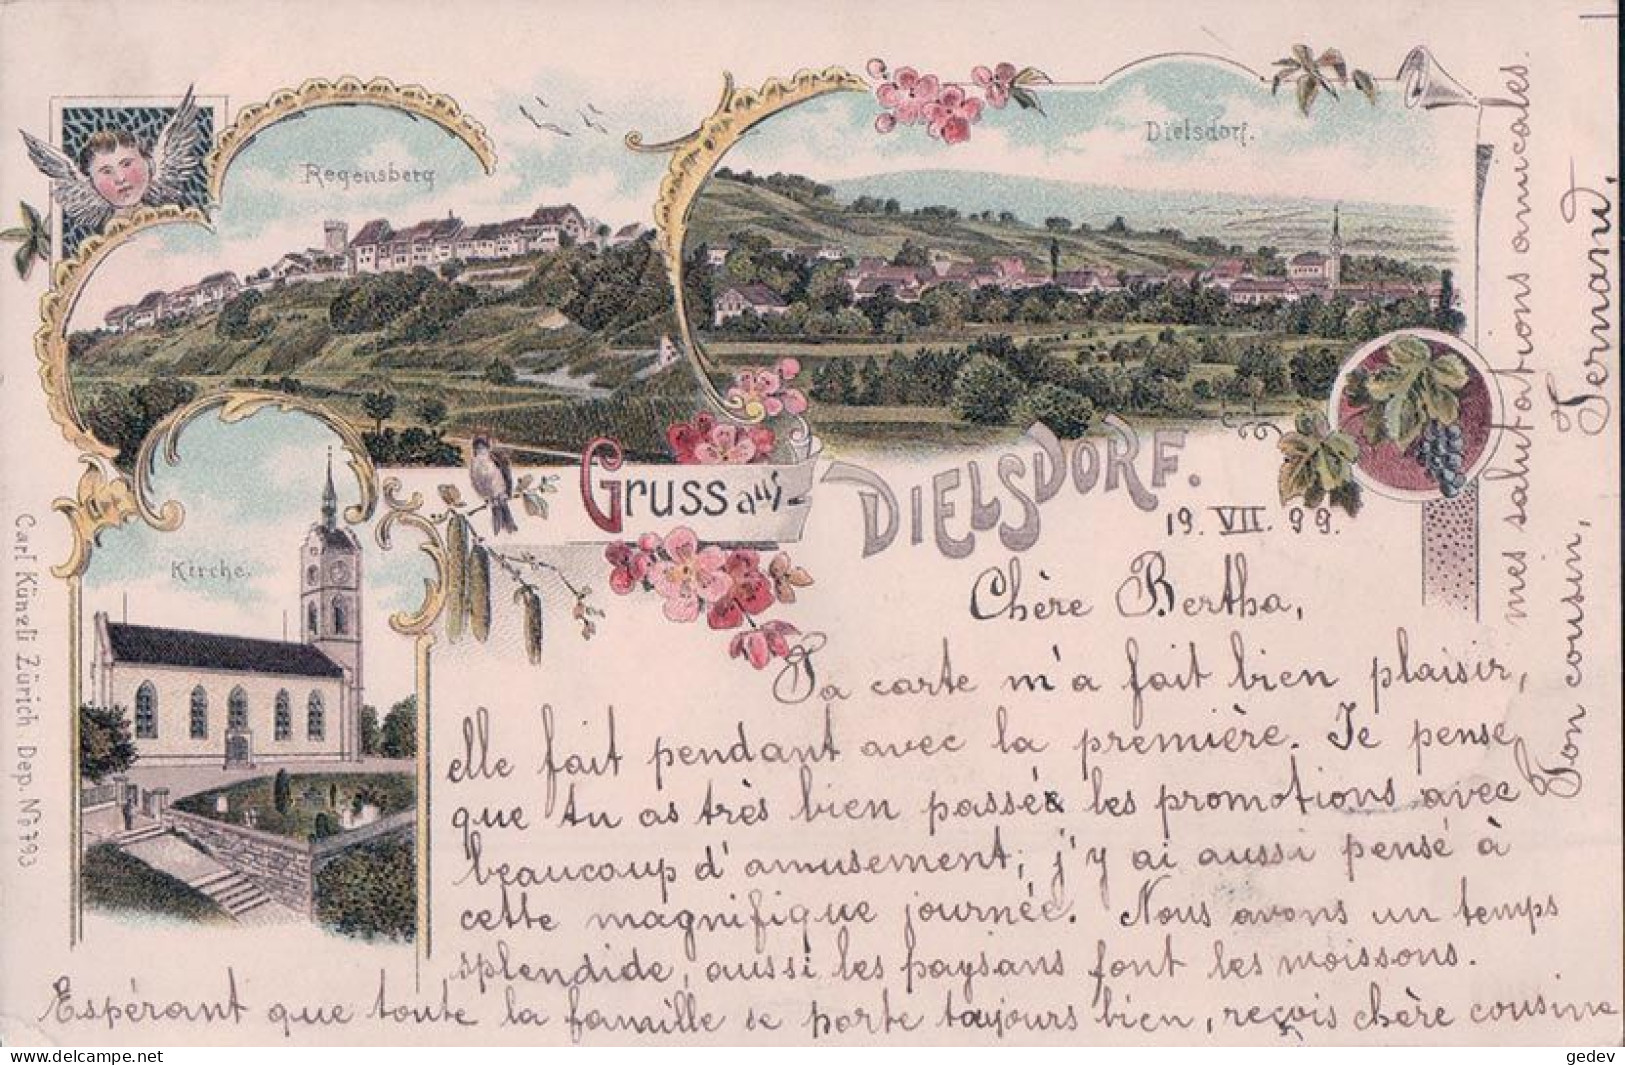 Regensberg
Dielsdorf.
Kirche.
Gruss aus
DIELSDORF.
19. VII. 99.
Chère Bertha,
Ta carte m'a fait bien plaisir,
elle fait pendant avec la première. Je pense
que tu as très bien passé les promotions avec
beaucoup d'amusement; j'y ai aussi pensé à
cette magnifique journée. Nous avons un temps
splendide, aussi les paysans font les moissons.
Espérant que toute la famille se porte toujours bien, reçois chère cousine
mes salutations amicales.
Ton cousin,
Fernand.
Carl Künzli Zürich Dep. No 793
www.delcampe.net
gedev